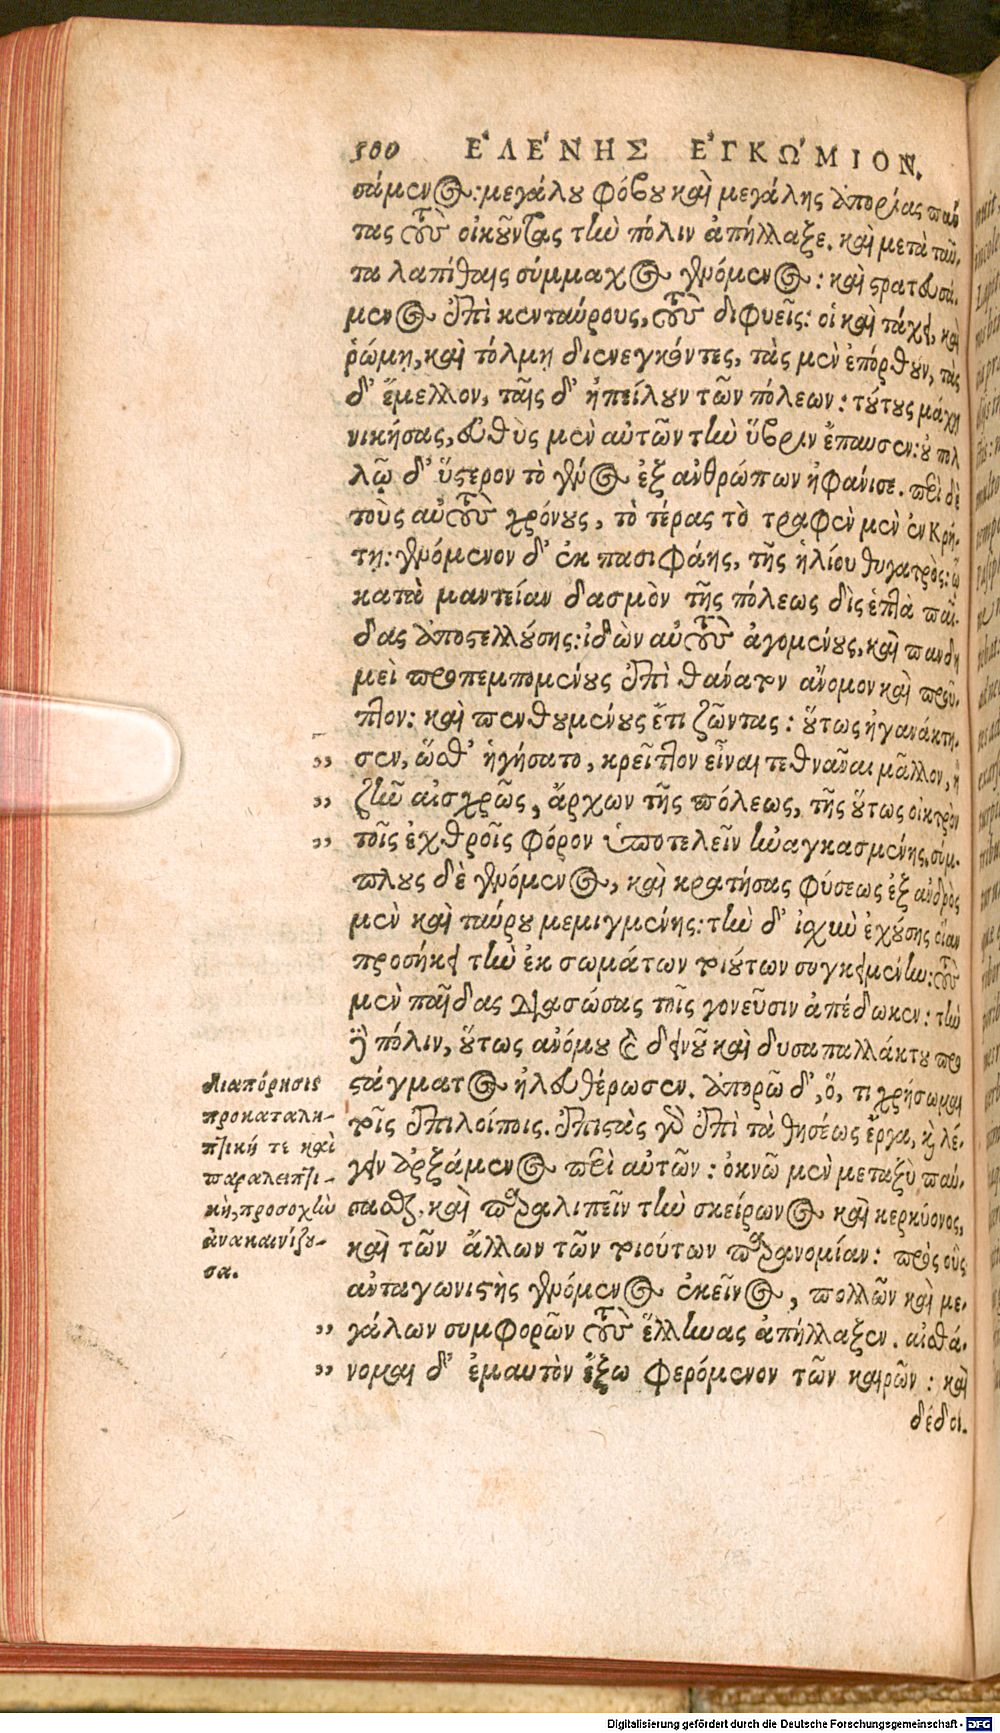 300 ΕʼΛΕʹΝΗΣ ΕʼΓΚΩʹΜΙΟΝ.
σάμενος: μεγάλου φόβου καὶ μεγάλης ἀπορίας πάν
τας τοὺς οἰκοῦντας τὴν πόλιν ἀπήλλαξε. καὶ μετὰ ταῦ-
τα λαπίθαις σύμμαχος γενόμενος: καὶ στρατευσά-
μενος ἐπὶ κενταύρους, τοὺς διφυεῖς: οἳ καὶ τάχει, καὶ
ῥώμῃ, καὶ τόλμῃ διενεγκόντες, τὰς μὲν ἐπόρθουν, τὰς
δ' ἔμελλον, ταῖς δ' ἠπείλουν τῶν πόλεων: τούτους μάχῃ
νικήσας, εὐθὺς μὲν αὐτῶν τὴν ὕβριν ἔπαυσεν: οὐ πολ
λῷ δ' ὕστερον τὸ γένος ἐξ ἀνθρώπων ἠφάνισε. περὶ δὲ
τοὺς αὐτοὺς χρόνους, τὸ τέρας τὸ τραφὲν μὲν ἐν Κρή-
τῃ: γενόμενον δ' ἐκ πασιφάης, τῆς ἡλίου θυγατρὸς: ᾧ
κατὰ μαντείαν δασμὸν τῆς πόλεως δὶς ἑπτὰ παῖ-
δας ἀποστελλούσης: ἰδὼν αὐτοὺς ἀγομένους, καὶ πανδη
μεὶ προπεμπομένους ἐπὶ θάνατον ἄνομον καὶ προῦ-
πτον: καὶ πενθουμένους ἔτι ζῶντας: οὕτως ἠγανάκτη-
" σεν, ὥσθ' ἡγήσατο, κρεῖττον εἶναι τεθνᾶναι μᾶλλον, ἢ
" ζῆν αἰσχρῶς, ἄρχων τῆς πόλεως, τῆς οὕτως οἰκτρὸν
" τοῖς ἐχθροῖς φόρον ὑποτελεῖν ἠναγκασμένης. σύμ-
πλους δὲ γενόμενος, καὶ κρατήσας φύσεως ἐξ ἀνδρὸς
μὲν καὶ ταύρου μεμιγμένης: τὴν δ' ἰσχὺν ἐχούσης οἵαν
προσήκει τὴν ἐκ σωμάτων τοιούτων συγκειμένην: τοὺς
μὲν παῖδας διασώσας τοῖς γονεῦσιν ἀπέδωκεν: τὴν
δὲ πόλιν, οὕτως ἀνόμου καὶ δεινοῦ καὶ δυσαπαλλάκτου προ
στάγματος ἠλευθέρωσεν. ἀπορῶ δ', ὅ, τι χρήσωμαι
τοῖς ἐπιλοίποις. ἐπιστὰς γὰρ ἐπὶ τὰ θησέως ἔργα, καὶ λέ-
γειν ἀρξάμενος περὶ αὐτῶν: ὀκνῶ μὲν μεταξὺ παύ-
σασθαι, καὶ παραλιπεῖν τὴν σκείρωνος καὶ κερκύονος,
καὶ τῶν ἄλλων τῶν τοιούτων παρανομίαν: πρὸς οὓς
ἀνταγωνιστὴς γενόμενος ἐκεῖνος, πολλῶν καὶ με-
" γάλων συμφορῶν τοὺς ἕλληνας ἀπήλλαξεν. αἰσθά-
" νομαι δ' ἐμαυτὸν ἔξω φερόμενον τῶν καιρῶν: καὶ
δέδοι.
Διαπόρησις
προκαταλη-
πτική τε καὶ
παραλειπτι-
κή, προσοχὴν
ἀνακαινίζου-
σα.
Digitalisierung gefördert durch die Deutsche Forschungsgemeinschaft - DFG